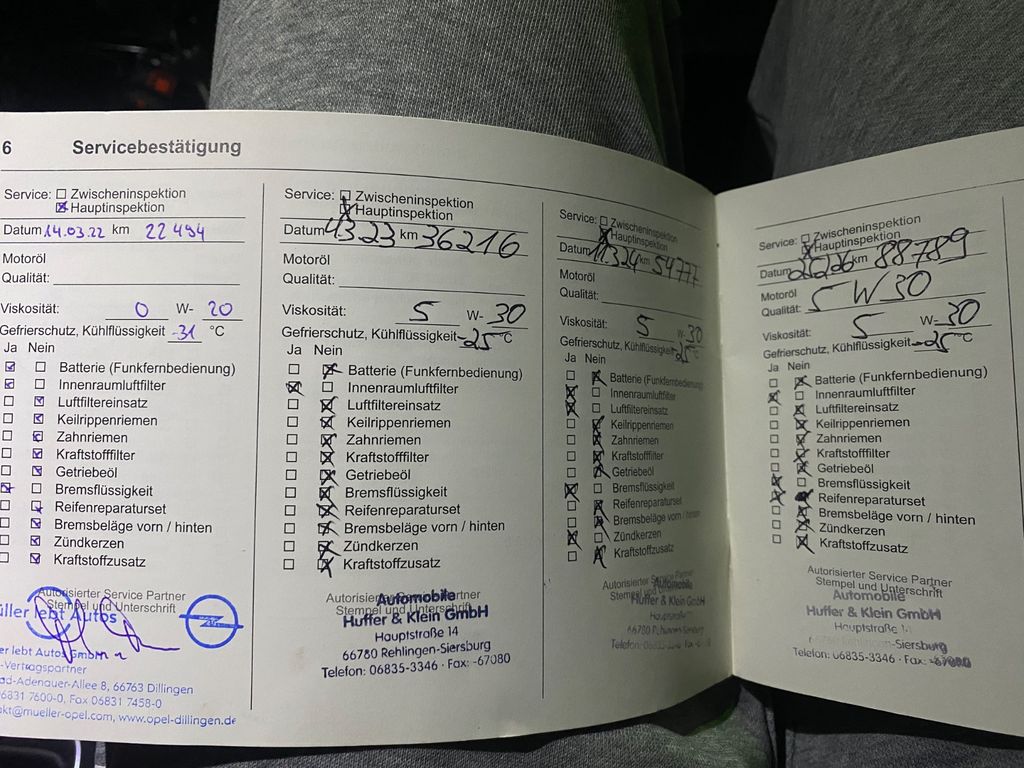 6 Servicebestätigung
Service: Zwischeninspektion
Hauptinspektion
Datum 14.03.22 km 22 494
Motoröl
Qualität:
Viskosität: 0 W- 20
Gefrierschutz, Kühlflüssigkeit -31 °C
Ja Nein
Batterie (Funkfernbedienung)
Innenraumluftfilter
Luftfiltereinsatz
Keilrippenriemen
Zahnriemen
Kraftstofffilter
Getriebeöl
Bremsflüssigkeit
Reifenreparaturset
Bremsbeläge vorn / hinten
Zündkerzen
Kraftstoffzusatz
Autorisierter Service Partner
Stempel und Unterschrift
üller lebt Autos
er lebt Autos GmbH
-Vertragspartner
ad-Adenauer-Allee 8, 66763 Dillingen
06831 7600-0, Fax 06831 7458-0
akt@mueller-opel.com, www.opel-dillingen.de
Service: Zwischeninspektion
Hauptinspektion
Datum 4323 km 36216
Motoröl
Qualität:
Viskosität: 5 W- 30
Gefrierschutz, Kühlflüssigkeit -25 °C
Ja Nein
Batterie (Funkfernbedienung)
Innenraumluftfilter
Luftfiltereinsatz
Keilrippenriemen
Zahnriemen
Kraftstofffilter
Getriebeöl
Bremsflüssigkeit
Reifenreparaturset
Bremsbeläge vorn / hinten
Zündkerzen
Kraftstoffzusatz
Autorisierter Service Partner
Stempel und Unterschrift
Automobile
Huffer & Klein GmbH
Hauptstraße 14
66780 Rehlingen-Siersburg
Telefon: 06835-3346 · Fax: -67080
Service: Zwischeninspektion
Hauptinspektion
Datum 11.324 km 54777
Motoröl
Qualität:
Viskosität: 5 W- 30
Gefrierschutz, Kühlflüssigkeit -25 °C
Ja Nein
Batterie (Funkfernbedienung)
Innenraumluftfilter
Luftfiltereinsatz
Keilrippenriemen
Zahnriemen
Kraftstofffilter
Getriebeöl
Bremsflüssigkeit
Reifenreparaturset
Bremsbeläge vorn / hinten
Zündkerzen
Kraftstoffzusatz
Autorisierter Service Partner
Stempel und Unterschrift
Automobile
Huffer & Klein GmbH
66780 Rehlingen-Siersburg
Service: Zwischeninspektion
Hauptinspektion
Datum 2626 km 88789
Motoröl
Qualität: 5 W 30
Viskosität: 5 W- 30
Gefrierschutz, Kühlflüssigkeit -25 °C
Ja Nein
Batterie (Funkfernbedienung)
Innenraumluftfilter
Luftfiltereinsatz
Keilrippenriemen
Zahnriemen
Kraftstofffilter
Getriebeöl
Bremsflüssigkeit
Reifenreparaturset
Bremsbeläge vorn / hinten
Zündkerzen
Kraftstoffzusatz
Autorisierter Service Partner
Stempel und Unterschrift
Automobile
Huffer & Klein GmbH
Hauptstraße 14
66780 Rehlingen-Siersburg
Telefon: 06835-3346 · Fax: -67080